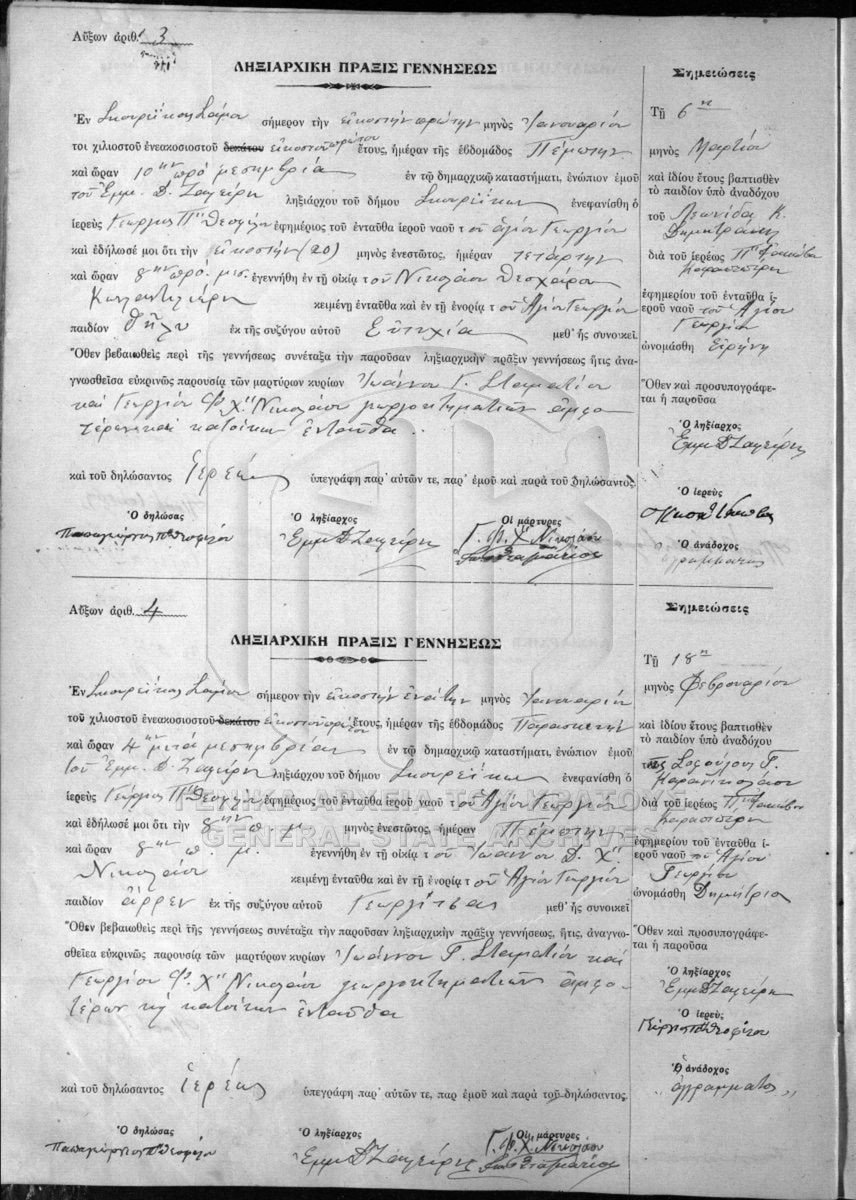 Αὔξων ἀριθ. 3
ΛΗΞΙΑΡΧΙΚΗ ΠΡΑΞΙΣ ΓΕΝΝΗΣΕΩΣ
Ἐν Σκουρέικα Σάμου σήμερον τὴν εἰκοστήν πρώτην μηνὸς Ἰανουαρίου
τοι χιλιοστοῦ ἐνεακοσιοστοῦ δεκάτου εἰκοστοῦ πρώτου ἔτους, ἡμέραν τῆς ἑβδομάδος Πέμπτην
καὶ ὥραν 10ην πρό μεσημβρία ἐν τῷ δημαρχικῷ καταστήματι, ἐνώπιον ἐμοῦ
τοῦ Ἐμμ. Δ. Ζαφείρη ληξιάρχου τοῦ δήμου Σκουρεΐκων ἐνεφανίσθη ὁ
ἱερεὺς Γεώργιος Ππ Θεοφίλου ἐφημέριος τοῦ ἐνταῦθα ἱεροῦ ναοῦ τ οῦ ἁγίου Γεωργίου
καὶ ἐδήλωσέ μοι ὅτι τὴν εἰκοστήν (20) μηνὸς ἐνεστῶτος, ἡμέραν τετάρτην
καὶ ὥραν 8ην προ. μεσ. ἐγεννήθη ἐν τῇ οἰκίᾳ τ οῦ Νικολάου
κειμένῃ ἐνταῦθα καὶ ἐν τῇ ἐνορίᾳ τ οῦ Ἁγίου Γεωργίου
παιδίον θῆλυ ἐκ τῆς συζύγου αὐτοῦ Εὐτυχία μεθ' ἧς συνοικεῖ
Ὅθεν βεβαιωθεὶς περὶ τῆς γεννήσεως συνέταξα τὴν παροῦσαν ληξιαρχικὴν πρᾶξιν γεννήσεως ἥτις ἀνα-
γνωσθεῖσα εὐκρινῶς παρουσίᾳ τῶν μαρτύρων κυρίων Ἰωάννου Γ. Σταματίου
καί Γεωργίου Φ. Χ" Νικολάου γεωργοκτηματιῶν ἀμφο-
τέρων καί κατοίκων ἐνταῦθα.
καὶ τοῦ δηλώσαντος Ἱερέως ὑπεγράφη παρ' αὐτῶν τε, παρ' ἐμοῦ καὶ παρὰ τοῦ δηλώσαντος.
Ὁ δηλώσας Ὁ ληξίαρχος Οἱ μάρτυρες
Παπαγεώργιος Ππ Θεοφίλου Ἐμμ Δ Ζαφείρης Γ. Φ. Χ" Νικολάου
Σημειώσεις
Τῇ 6η
μηνὸς Μαρτίου
καὶ ἰδίου ἔτους βαπτισθὲν
τὸ παιδίον ὑπὸ ἀναδόχου
τοῦ Λεωνίδα Κ.
διὰ τοῦ ἱερέως Ππ Ἰακώβου
ἐφημερίου τοῦ ἐνταῦθα ἱ-
εροῦ ναοῦ τοῦ Ἁγίου
Γεωργίου
ὠνομάσθη Εἰρήνη
Ὅθεν καὶ προσυπογράφε-
ται ἡ παροῦσα
Ὁ ληξίαρχος
Ἐμμ Δ Ζαφείρης
Ὁ ἱερεὺς
Ὁ ἀνάδοχος
ἀγράμματος
Αὔξων ἀριθ. 4
ΛΗΞΙΑΡΧΙΚΗ ΠΡΑΞΙΣ ΓΕΝΝΗΣΕΩΣ
Ἐν Σκουρέικα Σάμου σήμερον τὴν εἰκοστήν ἐνάτην μηνὸς Ἰανουαρίου
τοῦ χιλιοστοῦ ἐνεακοσιοστοῦ δεκάτου εἰκοστοῦ πρώτου ἔτους, ἡμέραν τῆς ἑβδομάδος Παρασκευήν
καὶ ὥραν 4ην μετά μεσημβρίαν ἐν τῷ δημαρχικῷ καταστήματι, ἐνώπιον ἐμοῦ
τοῦ Ἐμμ. Δ. Ζαφείρη ληξιάρχου τοῦ δήμου Σκουρεΐκων ἐνεφανίσθη ὁ
ἱερεὺς Γεώργιος Ππ Θεοφίλου ἐφημέριος τοῦ ἐνταῦθα ἱεροῦ ναοῦ τ οῦ Ἁγίου Γεωργίου
καὶ ἐδήλωσέ μοι ὅτι τὴν μηνὸς ἐνεστῶτος, ἡμέραν Πέμπτην
καὶ ὥραν 8ην π. μ. ἐγεννήθη ἐν τῇ οἰκίᾳ τ οῦ Ἰωάννου Δ. Χ"
Νικολάου κειμένῃ ἐνταῦθα καὶ ἐν τῇ ἐνορίᾳ τ οῦ Ἁγίου Γεωργίου
παιδίον ἄρρεν ἐκ τῆς συζύγου αὐτοῦ Γεωργίτσας μεθ' ἧς συνοικεῖ
Ὅθεν βεβαιωθεὶς περὶ τῆς γεννήσεως συνέταξα τὴν παροῦσαν ληξιαρχικὴν πρᾶξιν γεννήσεως, ἥτις, ἀναγνω-
σθεῖσα εὐκρινῶς παρουσίᾳ τῶν μαρτύρων κυρίων Ἰωάννου Γ. Σταματίου καί
Γεωργίου Φ. Χ" Νικολάου γεωργοκτηματιῶν ἀμφο-
τέρων κ κατοίκων ἐνταῦθα
καὶ τοῦ δηλώσαντος ἱερέως ὑπεγράφη παρ' αὐτῶν τε, παρ ἐμοῦ καὶ παρὰ τοῦ δηλώσαντος.
Ὁ δηλώσας Ὁ ληξίαρχος Οἱ μάρτυρες
Παπαγεώργιος Ππ Θεοφίλου Ἐμμ Δ Ζαφείρης Γ. Φ. Χ. Νικολάου
Σημειώσεις
Τῇ 18η
μηνὸς Φεβρουαρίου
καὶ ἰδίου ἔτους βαπτισθὲν
τὸ παιδίον ὑπὸ ἀναδόχου
διὰ τοῦ ἱερέως Ππ Ἰακώβου
ἐφημερίου τοῦ ἐνταῦθα ἱ-
εροῦ ναοῦ τοῦ Ἁγίου
Γεωργίου
ὠνομάσθη Δημήτριος
Ὅθεν καὶ προσυπογράφε-
ται ἡ παροῦσα
Ὁ ληξίαρχος
Ἐμμ Δ Ζαφείρης
Ὁ ἱερεὺς
Γεώργιος Ππ Θεοφίλου
Ὁ ἀνάδοχος
ἀγράμματος
ΓΕΝΙΚΑ ΑΡΧΕΙΑ ΤΟΥ ΚΡΑΤΟΥΣ
GENERAL STATE ARCHIVES